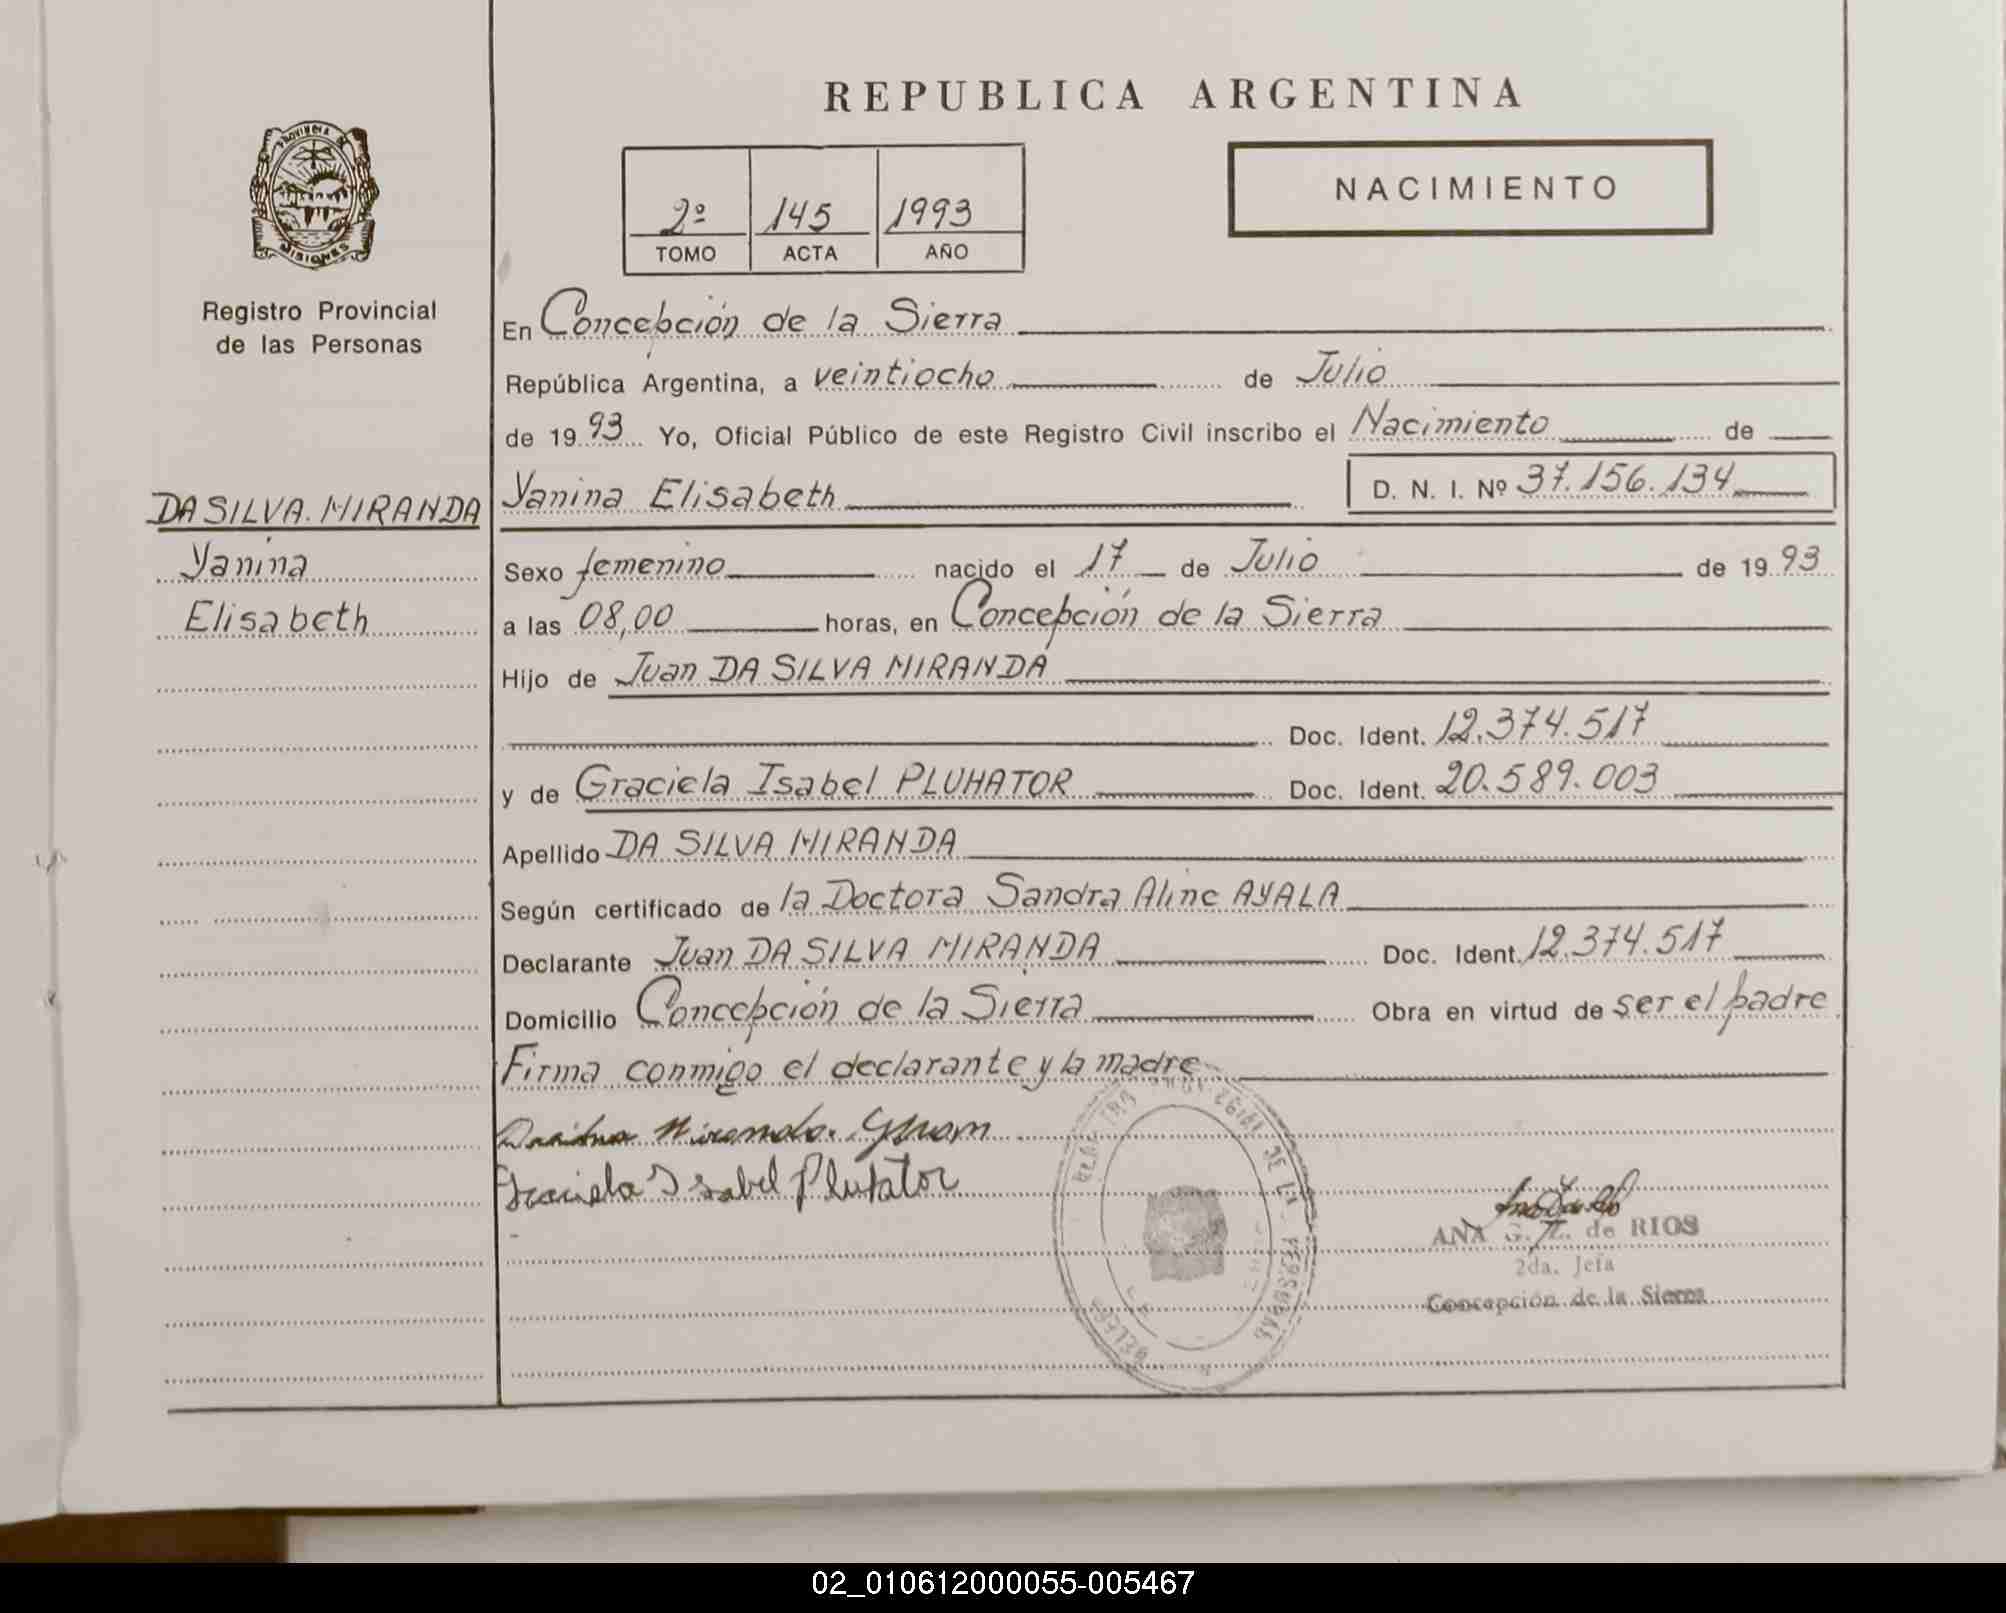 REPUBLICA ARGENTINA
PROVINCIA DE
MISIONES
Registro Provincial
de las Personas
2º 145 1993
TOMO ACTA AÑO
NACIMIENTO
En Concepción de la Sierra
República Argentina, a veintiocho de Julio
de 19 93 Yo, Oficial Público de este Registro Civil inscribo el Nacimiento de
Yanina Elisabeth D. N. I. Nº 37.156.134
DA SILVA MIRANDA
Yanina
Elisabeth
Sexo femenino nacido el 17 de Julio de 19 93
a las 08,00 horas, en Concepción de la Sierra
Hijo de Juan DA SILVA MIRANDA
Doc. Ident. 12.374.517
y de Graciela Isabel PLUHATOR Doc. Ident. 20.589.003
Apellido DA SILVA MIRANDA
Según certificado de la Doctora Sandra Aline AYALA
Declarante Juan DA SILVA MIRANDA Doc. Ident. 12.374.517
Domicilio Concepción de la Sierra Obra en virtud de ser el padre
Firma conmigo el declarante y la madre
Miranda
Graciela Isabel Plutator
ANA G. Z. de RIOS
2da. Jefa
Concepción de la Sierra
02_010612000055-005467